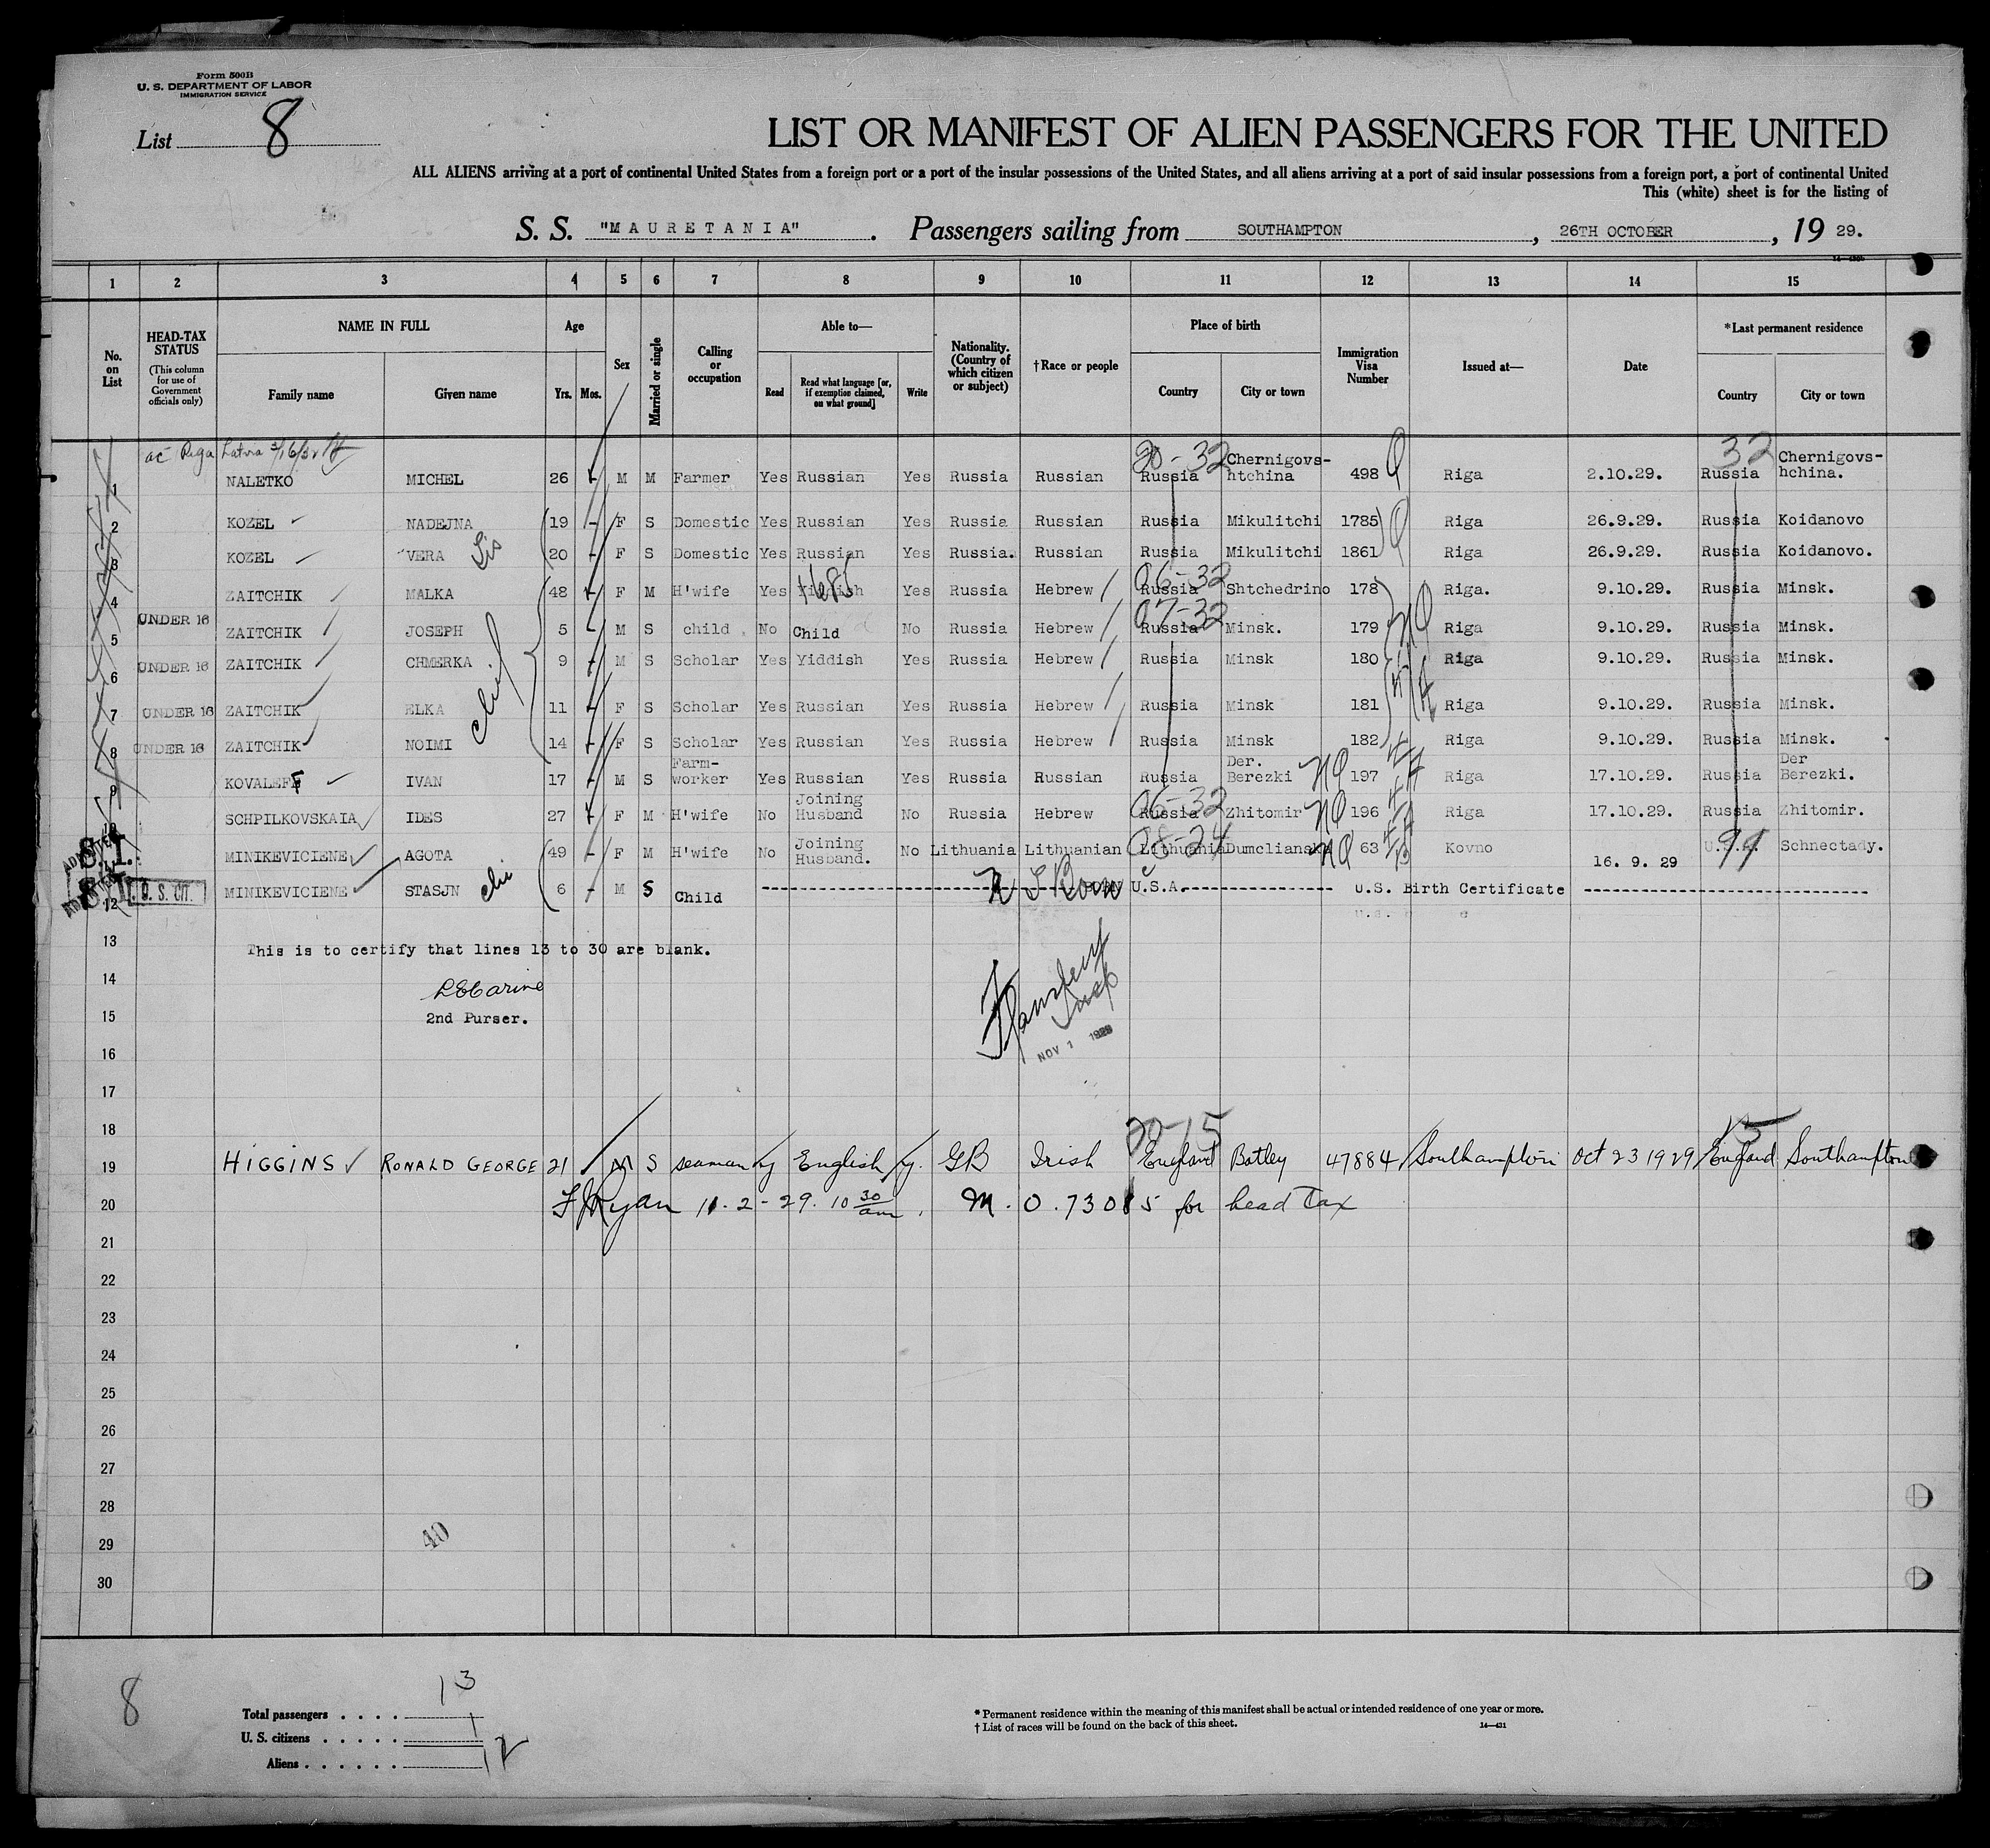 Form 500B
U. S. DEPARTMENT OF LABOR
IMMIGRATION SERVICE
List 8
LIST OR MANIFEST OF ALIEN PASSENGERS FOR THE UNITED
ALL ALIENS arriving at a port of continental United States from a foreign port or a port of the insular possessions of the United States, and all aliens arriving at a port of said insular possessions from a foreign port, a port of continental United
This (white) sheet is for the listing of
S. S. "MAURETANIA". Passengers sailing from SOUTHAMPTON, 26TH OCTOBER, 19 29.
1 2 3 4 5 6 7 8 9 10 11 12 13 14 15
No. on List
HEAD-TAX STATUS (This column for use of Government officials only)
NAME IN FULL Family name Given name
Age Yrs. Mos.
Sex
Married or single
Calling or occupation
Able to— Read Read what language [or, if exemption claimed, on what ground] Write
Nationality. (Country of which citizen or subject)
†Race or people
Place of birth Country City or town
Immigration Visa Number
Issued at—
Date
*Last permanent residence Country City or town
Riga Latvia
20-32 32
1 NALETKO MICHEL 26 M M Farmer Yes Russian Yes Russia Russian Russia Chernigovs-htchina 498 Riga 2.10.29. Russia Chernigovs-hchina.
2 KOZEL NADEJNA 19 - F S Domestic Yes Russian Yes Russia Russian Russia Mikulitchi 1785 Riga 26.9.29. Russia Koidanovo
3 KOZEL VERA Sis 20 - F S Domestic Yes Russian Yes Russia. Russian Russia Mikulitchi 1861 Riga 26.9.29. Russia Koidanovo.
06-32
4 ZAITCHIK MALKA 48 - F M H'wife Yes Yes Russia Hebrew Russia Shtchedrino 178 Riga. 9.10.29. Russia Minsk.
07-32
5 UNDER 16 ZAITCHIK JOSEPH 5 - M S child No Child No Russia Hebrew Russia Minsk. 179 Riga 9.10.29. Russia Minsk.
6 UNDER 16 ZAITCHIK CHMERKA 9 - M S Scholar Yes Yiddish Yes Russia Hebrew Russia Minsk 180 Riga 9.10.29. Russia Minsk.
7 UNDER 16 ZAITCHIK ELKA 11 - F S Scholar Yes Russian Yes Russia Hebrew Russia Minsk 181 Riga 9.10.29. Russia Minsk.
8 UNDER 16 ZAITCHIK NOIMI 14 - F S Scholar Yes Russian Yes Russia Hebrew Russia Minsk 182 Riga 9.10.29. Russia Minsk.
9 KOVALEFF IVAN 17 - M S Farm-worker Yes Russian Yes Russia Russian Russia Der. Berezki NQ 197 Riga 17.10.29. Russia Der Berezki.
06-32
10 SCHPILKOVSKAIA IDES 27 - F M H'wife No Joining Husband No Russia Hebrew Russia Zhitomir NQ 196 Riga 17.10.29. Russia Zhitomir.
08-24
11 S.I. MINIKEVICIENE AGOTA 49 - F M H'wife No Joining Husband. No Lithuania Lithuanian Lithuania Dumcliansk NQ 63 Kovno 16. 9. 29 U.S.A. Schnectady.
12 S.I. U. S. CIT. MINIKEVICIENE STASJN 6 - M S Child U.S.A. U.S. Birth Certificate
13 This is to certify that lines 13 to 30 are blank.
14
15 2nd Purser.
NOV 1
16
17
18
20-15 15
19 HIGGINS RONALD GEORGE 21 M S seaman y English y. GB Irish England Batley 47884 Southampton Oct 23 1929 England Southampton
20 Ryan 11-2-29. 10 30 am. M.O. 73085 for head Tax
21
22
23
24
25
26
27
28
29 40
30
8
Total passengers . . . . 13
U. S. citizens . . . . . 1
Aliens . . . . . . 12
* Permanent residence within the meaning of this manifest shall be actual or intended residence of one year or more.
† List of races will be found on the back of this sheet.
14—431